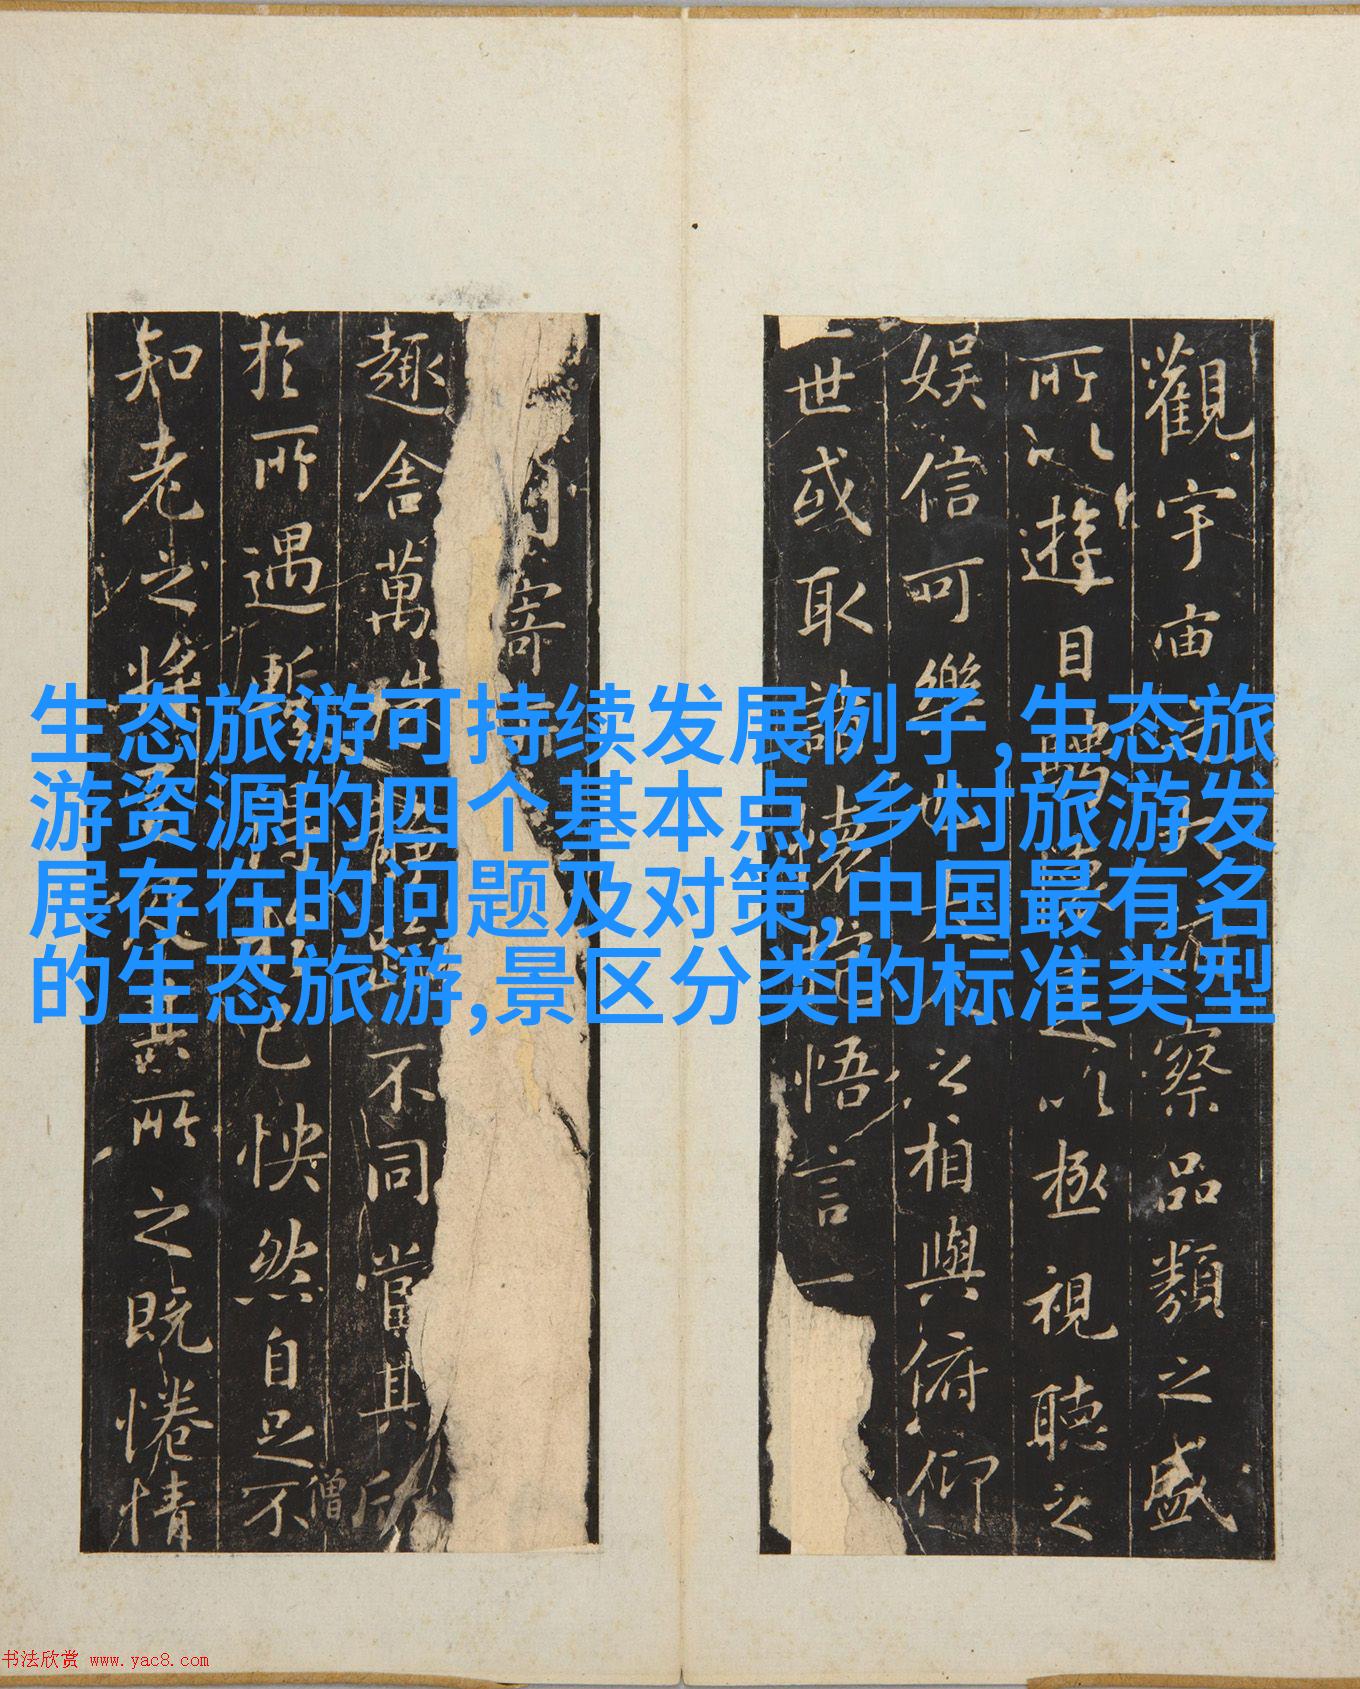 生态旅游可持续发展例子,生态旅
游资源的四个基本点,乡村旅游发
展存在的问题及对策,中国最有名
的生态旅游,景区分类的标准类型
觀宇宙察品類之盛
所以遊目騁以極視聽之
娛信可樂之相與俯仰
世或取諸懷悟言一
寄
趣舍萬不同當其欣
於所遇暫得己怏然自足不
僧
知老之將其所之既惓情
书法欣赏 www.yac8.com